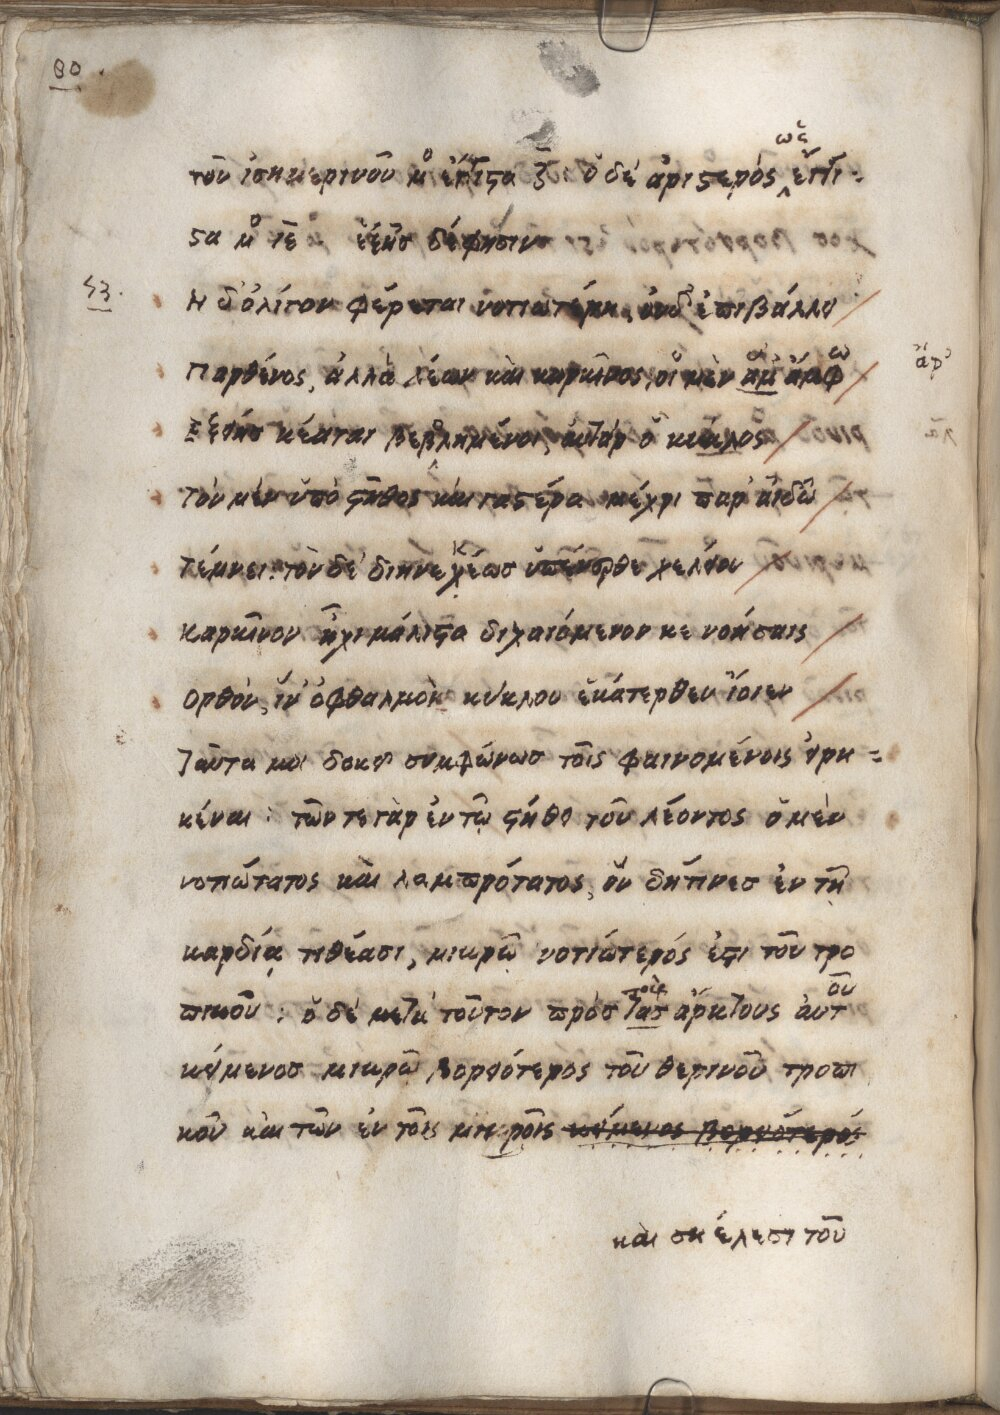 80.
ὡς
τοῦ ἰσημερινοῦ μ° ἔγγιστα ζ: ὁ δὲ ἀριστερός ἔγγι-
στα μ° ιε ἑξῆσ δέ φησιν
53.
Η δ' ὀλίγον φέρεται νοτιωτέρη, οὐδ' ἐπιβάλλει
Παρθένος, ἀλλὰ λέων καὶ καρκῖνος, οἱ μὲν ἄμ' ἄμφω
ἄρ'
Εξείησ κέαται βεβλημένοι, αὐτὰρ ὁ κύκλος
Τὸν μὲν ὑπὸ στῆθος καὶ γαστέρα μέχρι παρ' αἰδῶ
Τέμνει: τὸν δὲ διηνεκέωσ ὑπένερθε χελείου
Καρκῖνον ἧχι μάλιστα διχαιόμενον κε νοήσαις
Ορθὸν, ἵν' ὀφθαλμοὶ κύκλου ἑκάτερθεν ἴοιεν
Ταῦτά μοι δοκεῖ συμφώνωσ τοῖς φαινομένοις εἰρη=
κέναι: τῶν τε γὰρ ἐν τῷ στήθει τοῦ λέοντος ὁ μὲν
νοτιώτατος καὶ λαμπρότατος, ὃν δή τινεσ ἐν τῇ
καρδίᾳ τιθέασι, μικρῷ νοτιώτερός ἐστι τοῦ τρο
πικοῦ: ὁ δὲ μετὰ τοῦτον πρόσ τὰσ ἄρκτους αὐτοῦ
κείμενοσ μικρῷ βορειότερος τοῦ θερινοῦ τροπι
κοῦ καὶ τῶν ἐν τοῖς μικροῖς κείμενος βορειότερός
καὶ σκέλεσι τοῦ